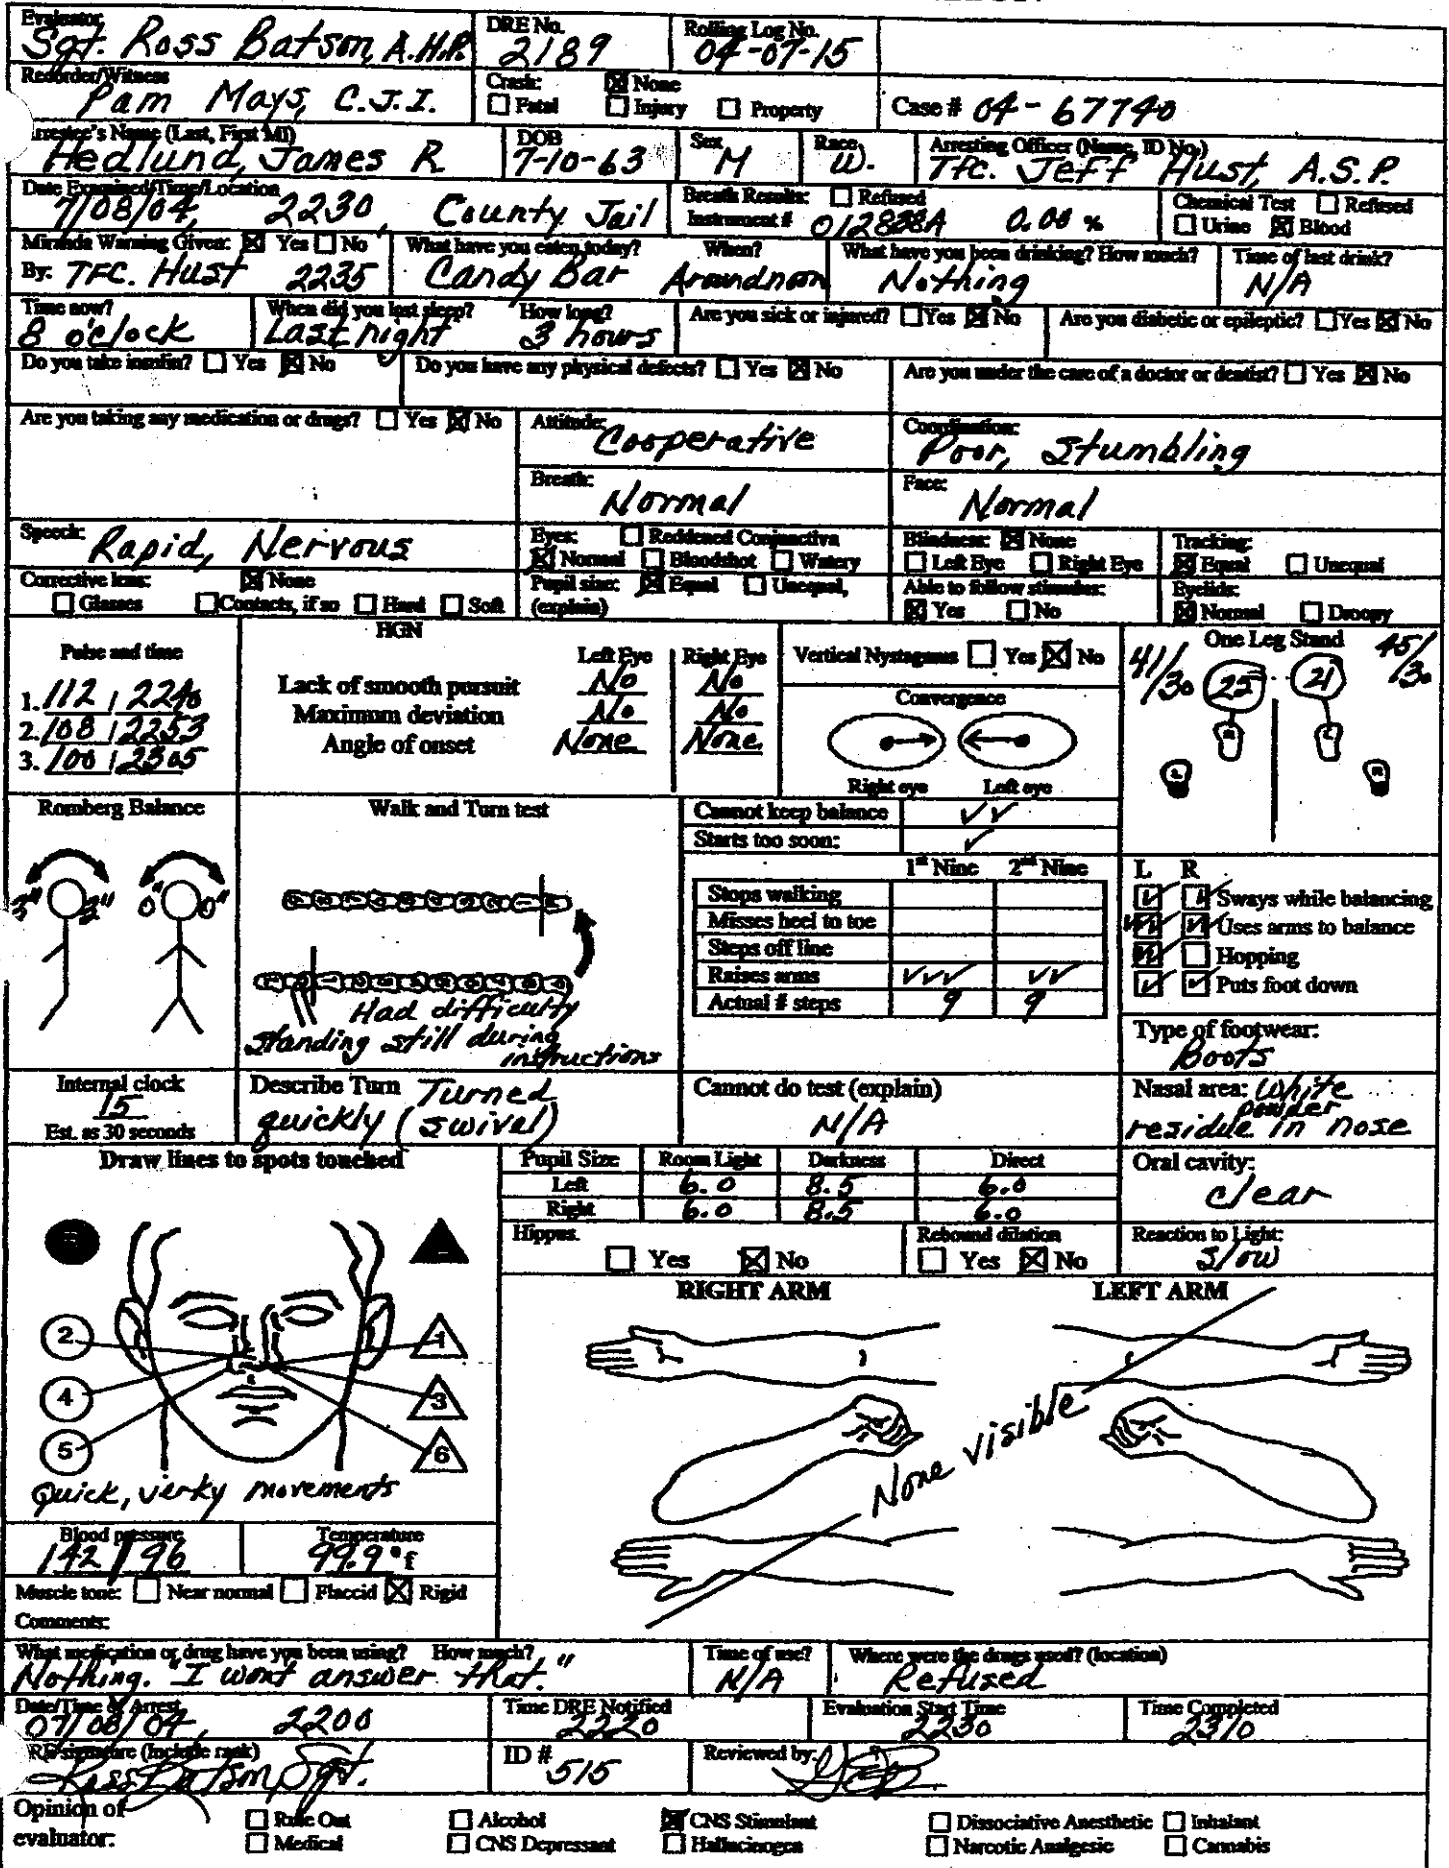 Evaluator
Sgt. Ross Batson, A.H.P.
DRE No.
2189
Rolling Log No.
04-07-15
Recorder/Witness
Pam Mays, C.J.I.
Crash: ☒ None
☐ Fatal ☐ Injury ☐ Property
Case # 04-67740
Arrestee's Name (Last, First MI)
Hedlund, James R
DOB
7-10-63
Sex
M
Race
W.
Arresting Officer (Name, ID No.)
Tfc. Jeff Hust, A.S.P.
Date Examined/Time/Location
7/08/04, 2230, County Jail
Breath Results: ☐ Refused
Instrument # 012838A 0.00 %
Chemical Test ☐ Refused
☐ Urine ☒ Blood
Miranda Warning Given: ☒ Yes ☐ No
By: TFC. Hust 2235
What have you eaten today? When?
Candy Bar Around noon
What have you been drinking? How much?
Nothing
Time of last drink?
N/A
Time now?
8 o'clock
When did you last sleep? How long?
Last night 3 hours
Are you sick or injured? ☐ Yes ☒ No
Are you diabetic or epileptic? ☐ Yes ☒ No
Do you take insulin? ☐ Yes ☒ No
Do you have any physical defects? ☐ Yes ☒ No
Are you under the care of a doctor or dentist? ☐ Yes ☒ No
Are you taking any medication or drugs? ☐ Yes ☒ No
Attitude:
Cooperative
Coordination:
Poor, Stumbling
Breath:
Normal
Face:
Normal
Speech:
Rapid, Nervous
Eyes: ☐ Reddened Conjunctiva
☒ Normal ☐ Bloodshot ☐ Watery
Blindness: ☒ None
☐ Left Eye ☐ Right Eye
Tracking:
☒ Equal ☐ Unequal
Corrective lens: ☒ None
☐ Glasses ☐ Contacts, if so ☐ Hard ☐ Soft
Pupil size: ☒ Equal ☐ Unequal,
(explain)
Able to follow stimulus:
☒ Yes ☐ No
Eyelids:
☒ Normal ☐ Droopy
Pulse and time
1. 112 / 2240
2. 108 / 2253
3. 100 / 2305
HGN
Left Eye Right Eye
Lack of smooth pursuit No No
Maximum deviation No No
Angle of onset None None
Vertical Nystagmus ☐ Yes ☒ No
Convergence
Right eye Left eye
One Leg Stand
41/30 22 21 45/30
R L
L R
Romberg Balance
3" 3" 0" 0"
Walk and Turn test
Had difficulty
standing still during
instructions
Cannot keep balance ✓✓
Starts too soon: ✓
1st Nine 2nd Nine
Stops walking
Misses heel to toe
Steps off line
Raises arms ✓✓✓ ✓✓
Actual # steps 9 9
L R
Sways while balancing
Uses arms to balance
Hopping
Puts foot down
Type of footwear:
Boots
Internal clock
15
Est. as 30 seconds
Describe Turn Turned
quickly (swivel)
Cannot do test (explain)
N/A
Nasal area: White
powder
residue in nose
Draw lines to spots touched
2
4
5
1
3
6
Quick, jerky movements
Pupil Size Room Light Darkness Direct
Left 6.0 8.5 6.0
Right 6.0 8.5 6.0
Oral cavity:
clear
Hippus.
☐ Yes ☒ No
Rebound dilation
☐ Yes ☒ No
Reaction to Light:
slow
RIGHT ARM LEFT ARM
None visible
Blood pressure
142/96
Temperature
99.9°f
Muscle tone: ☐ Near normal ☐ Flaccid ☒ Rigid
Comments:
What medication or drug have you been using? How much?
Nothing. "I wont answer that."
Time of use?
N/A
Where were the drugs used? (location)
Refused
Date/Time of Arrest
07/08/04, 2200
Time DRE Notified
2220
Evaluation Start Time
2230
Time Completed
2310
signature (Include rank)
Ross Batson, Sgt.
ID #
515
Reviewed by:
Opinion of
evaluator:
☐ Rule Out ☐ Alcohol ☒ CNS Stimulant ☐ Dissociative Anesthetic ☐ Inhalant
☐ Medical ☐ CNS Depressant ☐ Hallucinogen ☐ Narcotic Analgesic ☐ Cannabis